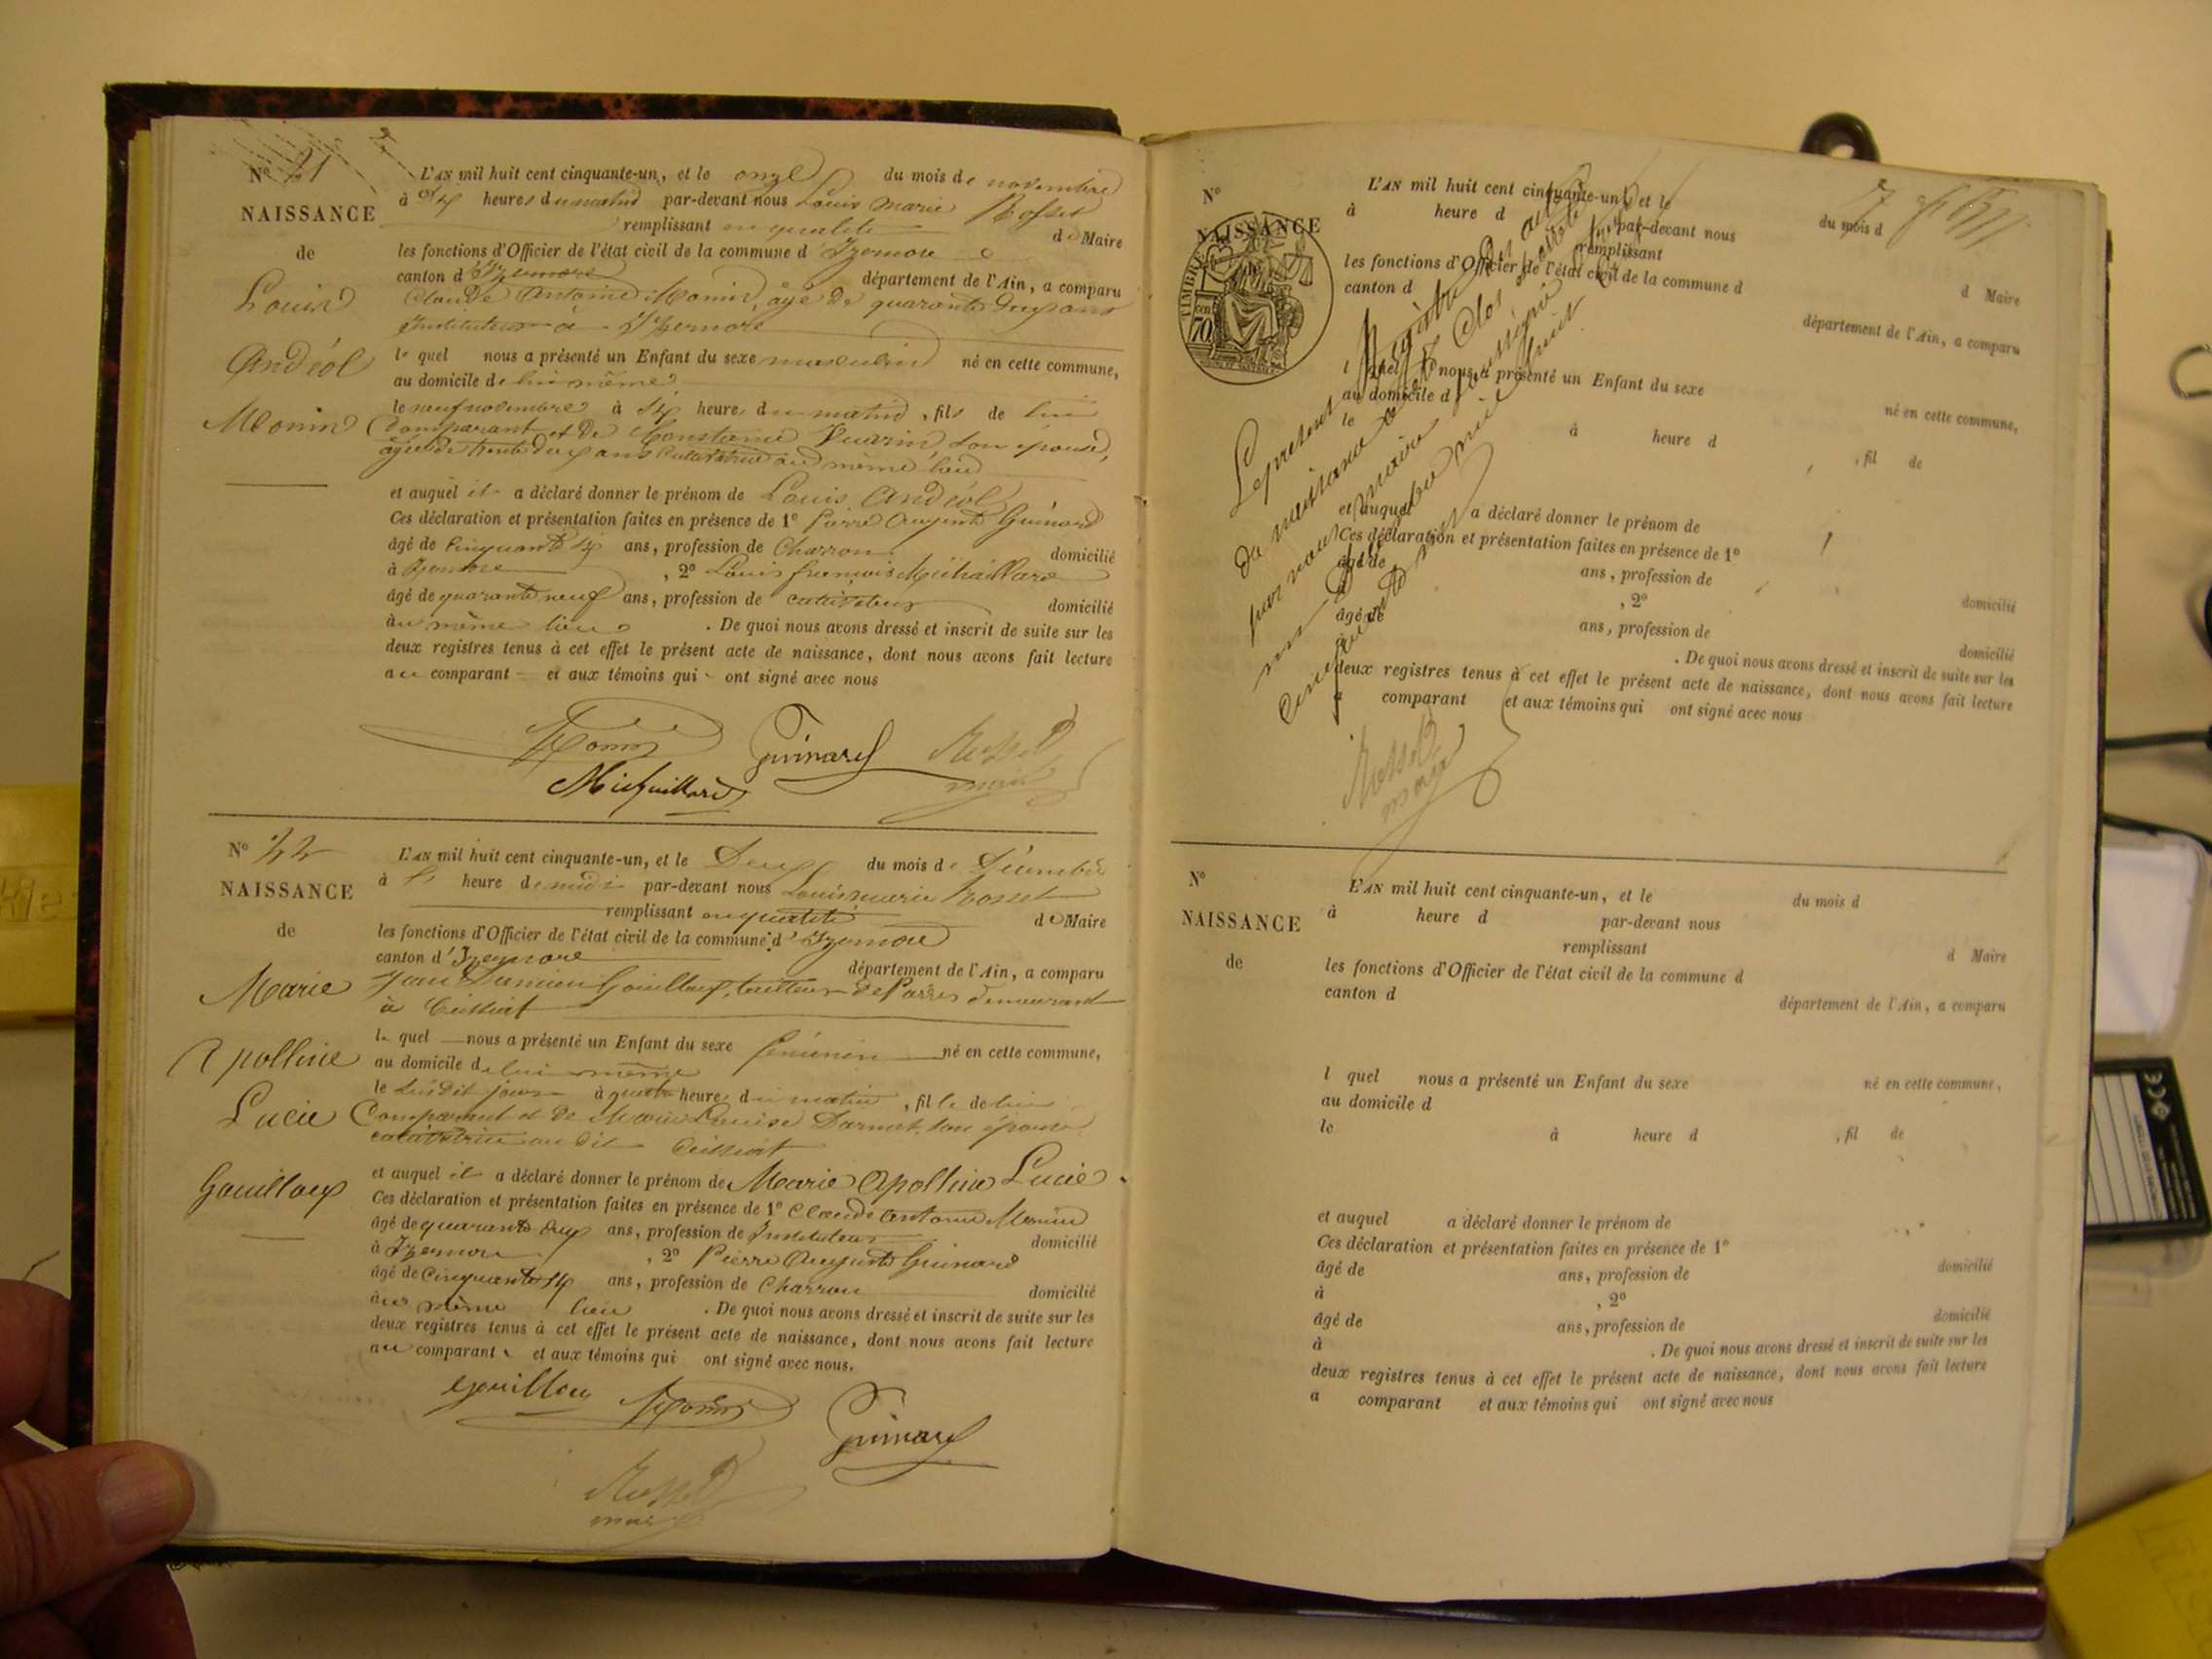 N° 21
NAISSANCE
de
Louis
Andéol
Monin
L'AN mil huit cent cinquante-un, et le onze du mois de novembre
à dix heures du matin par-devant nous Louis Marie Rosset
remplissant en qualité de Maire
les fonctions d'Officier de l'état civil de la commune d'Izernore
canton d'Izernore département de l'Ain, a comparu
Claude Antoine Monin, âgé de quarante deux ans
Instituteur à Izernore
lequel nous a présenté un Enfant du sexe masculin né en cette commune,
au domicile de lui même
le neuf novembre à six heures du matin, fils de lui
Comparant et de Constance son épouse,
âgée de trente deux ans Cultivatrice au même lieu
et auquel il a déclaré donner le prénom de Louis Andéol
Ces déclaration et présentation faites en présence de 1° Pierre Auguste Guinard
âgé de Cinquante six ans, profession de Charron domicilié
à Izernore, 2° Louis françois Michaillard
âgé de quarante neuf ans, profession de cultivateur domicilié
au même lieu. De quoi nous avons dressé et inscrit de suite sur les
deux registres tenus à cet effet le présent acte de naissance, dont nous avons fait lecture
au comparant et aux témoins qui ont signé avec nous
Monin Guinard Rosset
Michaillard maire
N° 22
NAISSANCE
de
Marie
Apolline
Lucie
Gouilloux
L'AN mil huit cent cinquante-un, et le Deux du mois de Décembre
à heure de midi par-devant nous Louis marie Rosset
remplissant en qualité de Maire
les fonctions d'Officier de l'état civil de la commune d'Izernore
canton d'Izernore département de l'Ain, a comparu
Jean Damien Gouilloux, tailleur de Pierres demeurant
à Ceissiat
lequel nous a présenté un Enfant du sexe féminin né en cette commune,
au domicile de lui même
le susdit jour à quatre heures du matin, fille de lui
Comparant et de Marie Louise Darnat, son épouse
cultivatrice au dit Ceissiat
et auquel il a déclaré donner le prénom de Marie Apolline Lucie.
Ces déclaration et présentation faites en présence de 1° Claude Antoine Monin
âgé de quarante deux ans, profession de Instituteur domicilié
à Izernore, 2° Pierre Auguste Guinard
âgé de Cinquante six ans, profession de Charron domicilié
au même lieu. De quoi nous avons dressé et inscrit de suite sur les
deux registres tenus à cet effet le présent acte de naissance, dont nous avons fait lecture
au comparant et aux témoins qui ont signé avec nous.
Gouillou Monin Guinard
Rosset
maire
N°
NAISSANCE
TIMBRE
70
L'AN mil huit cent cinquante-un, et le du mois d
à heure d par-devant nous
remplissant d Maire
les fonctions d'Officier de l'état civil de la commune d
canton d département de l'Ain, a comparu
l quel nous a présenté un Enfant du sexe né en cette commune,
au domicile d
le à heure d , fil de
et auquel a déclaré donner le prénom de
Ces déclaration et présentation faites en présence de 1°
âgé de ans, profession de domicilié
à , 2°
âgé de ans, profession de domicilié
à . De quoi nous avons dressé et inscrit de suite sur les
deux registres tenus à cet effet le présent acte de naissance, dont nous avons fait lecture
a comparant et aux témoins qui ont signé avec nous
Le présent Registre des actes
de naissance a été Clos arrêté
par nous maire soussigné
mil huit
cinquante
Rosset
maire
N°
NAISSANCE
de
L'AN mil huit cent cinquante-un, et le du mois d
à heure d par-devant nous
remplissant d Maire
les fonctions d'Officier de l'état civil de la commune d
canton d département de l'Ain, a comparu
l quel nous a présenté un Enfant du sexe né en cette commune,
au domicile d
le à heure d , fil de
et auquel a déclaré donner le prénom de
Ces déclaration et présentation faites en présence de 1°
âgé de ans, profession de domicilié
à , 2°
âgé de ans, profession de domicilié
à . De quoi nous avons dressé et inscrit de suite sur les
deux registres tenus à cet effet le présent acte de naissance, dont nous avons fait lecture
a comparant et aux témoins qui ont signé avec nous